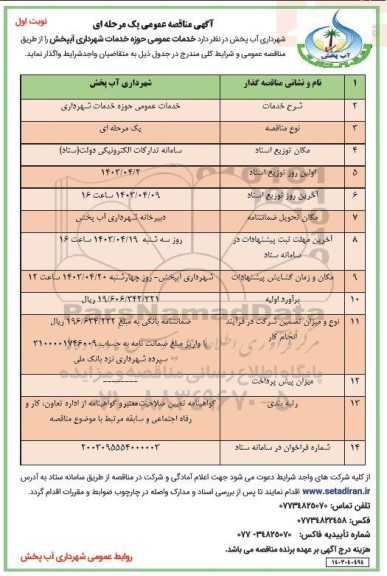 نوبت اول
آگهی مناقصه عمومی یک مرحله ای
آب پخش
شهرداری آب پخش در نظر دارد خدمات عمومی حوزه خدمات شهرداری آبپخش را از طریق
مناقصه عمومی و شرایط کلی مندرج در جدول ذیل به متقاضیان واجدشرایط واگذار نماید.
۱ نام و نشانی مناقصه گذار شهرداری آب پخش
۲ شرح خدمات خدمات عمومی حوزه خدمات شهرداری
۳ نوع مناقصه یک مرحله ای
۴ مکان توزیع اسناد سامانه تدارکات الکترونیکی دولت(ستاد)
۵ اولین روز توزیع اسناد ۱۴۰۳/۰۴/۲
۶ آخرین روز توزیع اسناد ۱۴۰۳/۰۴/۰۹ ساعت ۱۶
۷ مکان تحویل ضمانتنامه دبیرخانه شهرداری آب پخش
۸ آخرین مهلت ثبت پیشنهادات در روز سه شنبه ۱۴۰۳/۰۴/۱۹ ساعت ۱۶
سامانه ستاد
۹ مکان و زمان گشایش پیشنهادات شهرداری آبپخش- روز چهارشنبه ۱۴۰۳/۰۴/۲۰ ساعت ۱۲
۱۰ برآورد اولیه ۱۹/۶۰۶/۳۴۲/۲۲۱ ریال
۱۱ نوع و میزان تضمین شرکت در فرآیند ضمانتنامه بانکی به مبلغ ریال
انجام کار یا واریز مبلغ ضمانت نامه به حساب ۳۱۰۰۰۰۱۷۴۶۰۰۹
سپرده شهرداری نزد بانک ملی
۱۲ میزان پیش پرداخت --------
۱۳ رتبه بندی گواهینامه تعیین صلاحیت معتبر و گواهینامه از اداره تعاون، کار و
رفاه اجتماعی و سابقه مرتبط با موضوع مناقصه
۱۴ شماره فراخوان در سامانه ستاد ۲۰۰۳۰۹۵۵۵۴۰۰۰۰۰۳
از کلیه شرکت های واجد شرایط دعوت می شود جهت اعلام آمادگی و شرکت در مناقصه از طریق سامانه ستاد به آدرس
www.setadiran.ir اقدام نمایند تا پس از بررسی اسناد و مدارک واصله در چارچوب ضوابط و مقررات اقدام گردد.
تلفن تماس: ۰۷۷۳۴۸۲۵۰۷۰
فکس: ۰۷۷۳۴۸۲۲۴۵۸
شماره تأییدیه فاکس: ۳۴۸۲۵۰۷۰-۰۷۷
هزینه درج آگهی بر عهده برنده مناقصه می باشد.
روابط عمومی شهرداری آب پخش
۱۴۰۳۰۴۰۴۹۴